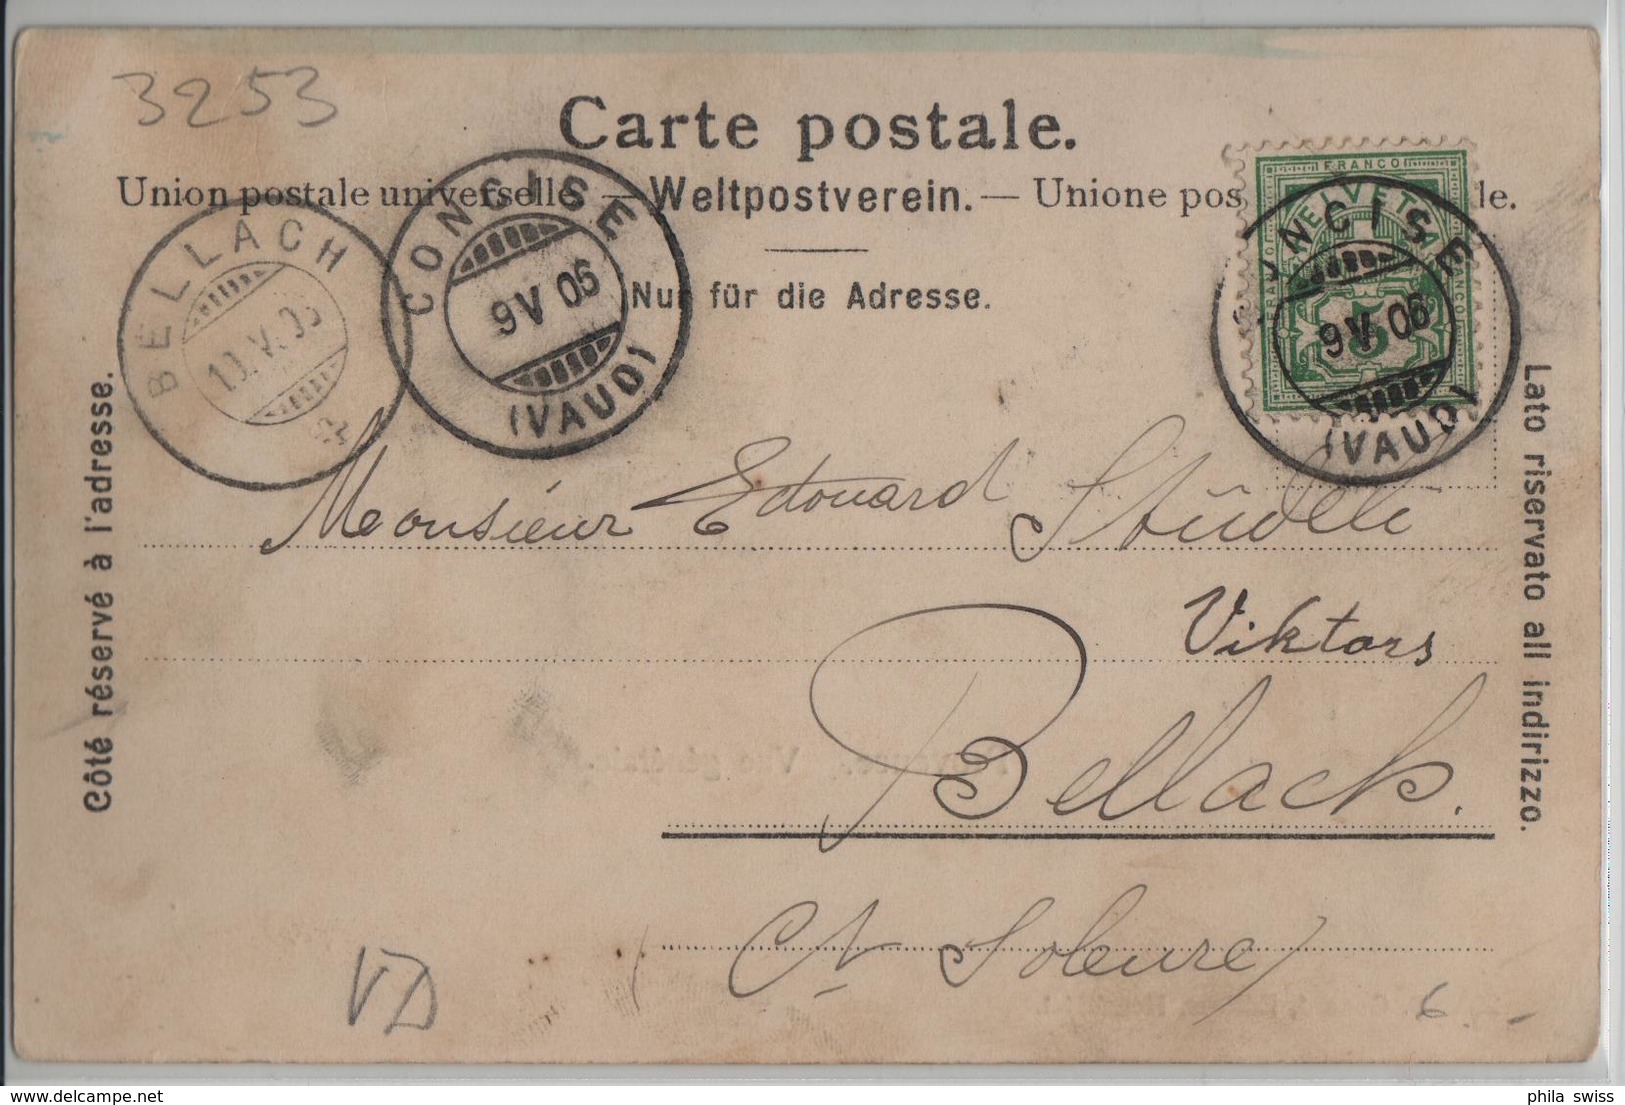 3253
Carte postale.
Union postale universelle. — Weltpostverein. — Unione pos le.
Nur für die Adresse.
BELLACH
10.V.06
CONCISE
9 V 06
(VAUD)
FRANCO
HELVETIA
FRANCO
FRANCO
5
NCISE
9 V 06
(VAUD)
Côté réservé à l'adresse.
Lato riservato all indirizzo.
Monsieur Edouard Stüdeli
Viktors
Bellach.
Ct Soleure
VD
6.-
Vue générale.
phila swiss